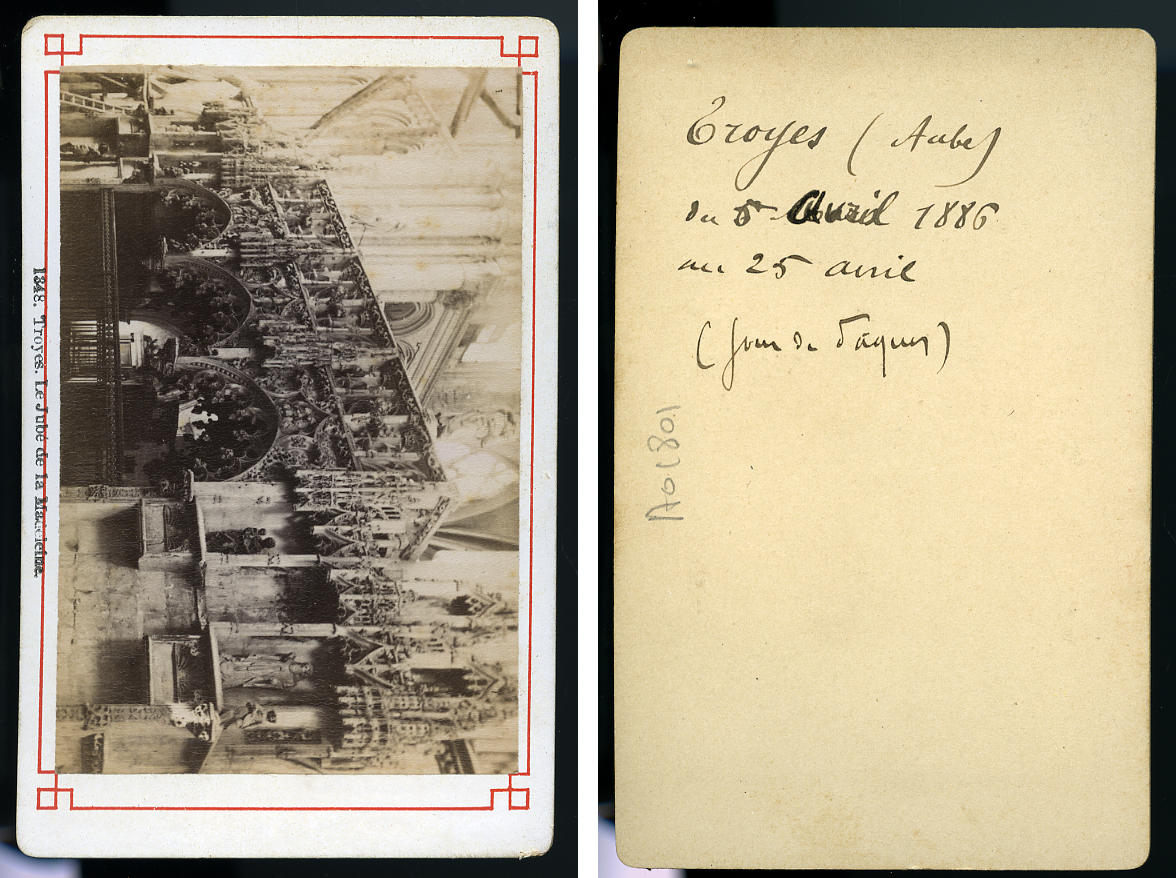 1348. Troyes. Le Jubé de la Madeleine.
Troyes (Aube)
du 5 Avril 1886
au 25 avril
(Jour de Pâques)
A01801